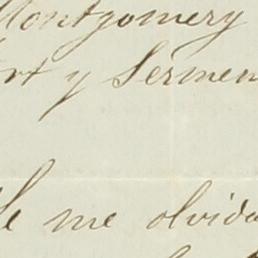 Montgomery
rt y Sermen
Se me olvida